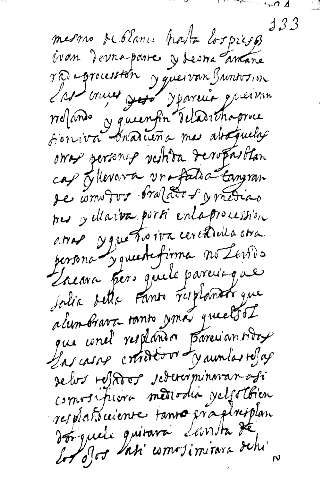 133
mesmo de blanco hasta los pies q
ivan de una parte y de otra a mane
ra de procession y que ivan juntos in
las cruces y parecia que ivan
rezando y que en fin de la dicha proce
sion iva una dueña mas alta que las
otras personas vestida de ropas blan
cas y llevava una falda tan gran
de como dos braçadas y media o
tres y ella iva por si en la procession
otras y que no iva cerca della otra
persona y que este firma no le vido
la cara pero que le parecia que
salia della tanto resplandor que
alumbrava tanto y mas que el sol
que con el resplandor parecian todas
las casas en rededor y aun las tejas
de los tejados se determinavan asi
como si fuera mediodia y el sol bien
resplandeciente tanto era el resplan
dor que le quitava la vista de
los ojos asi como si mirara de hi